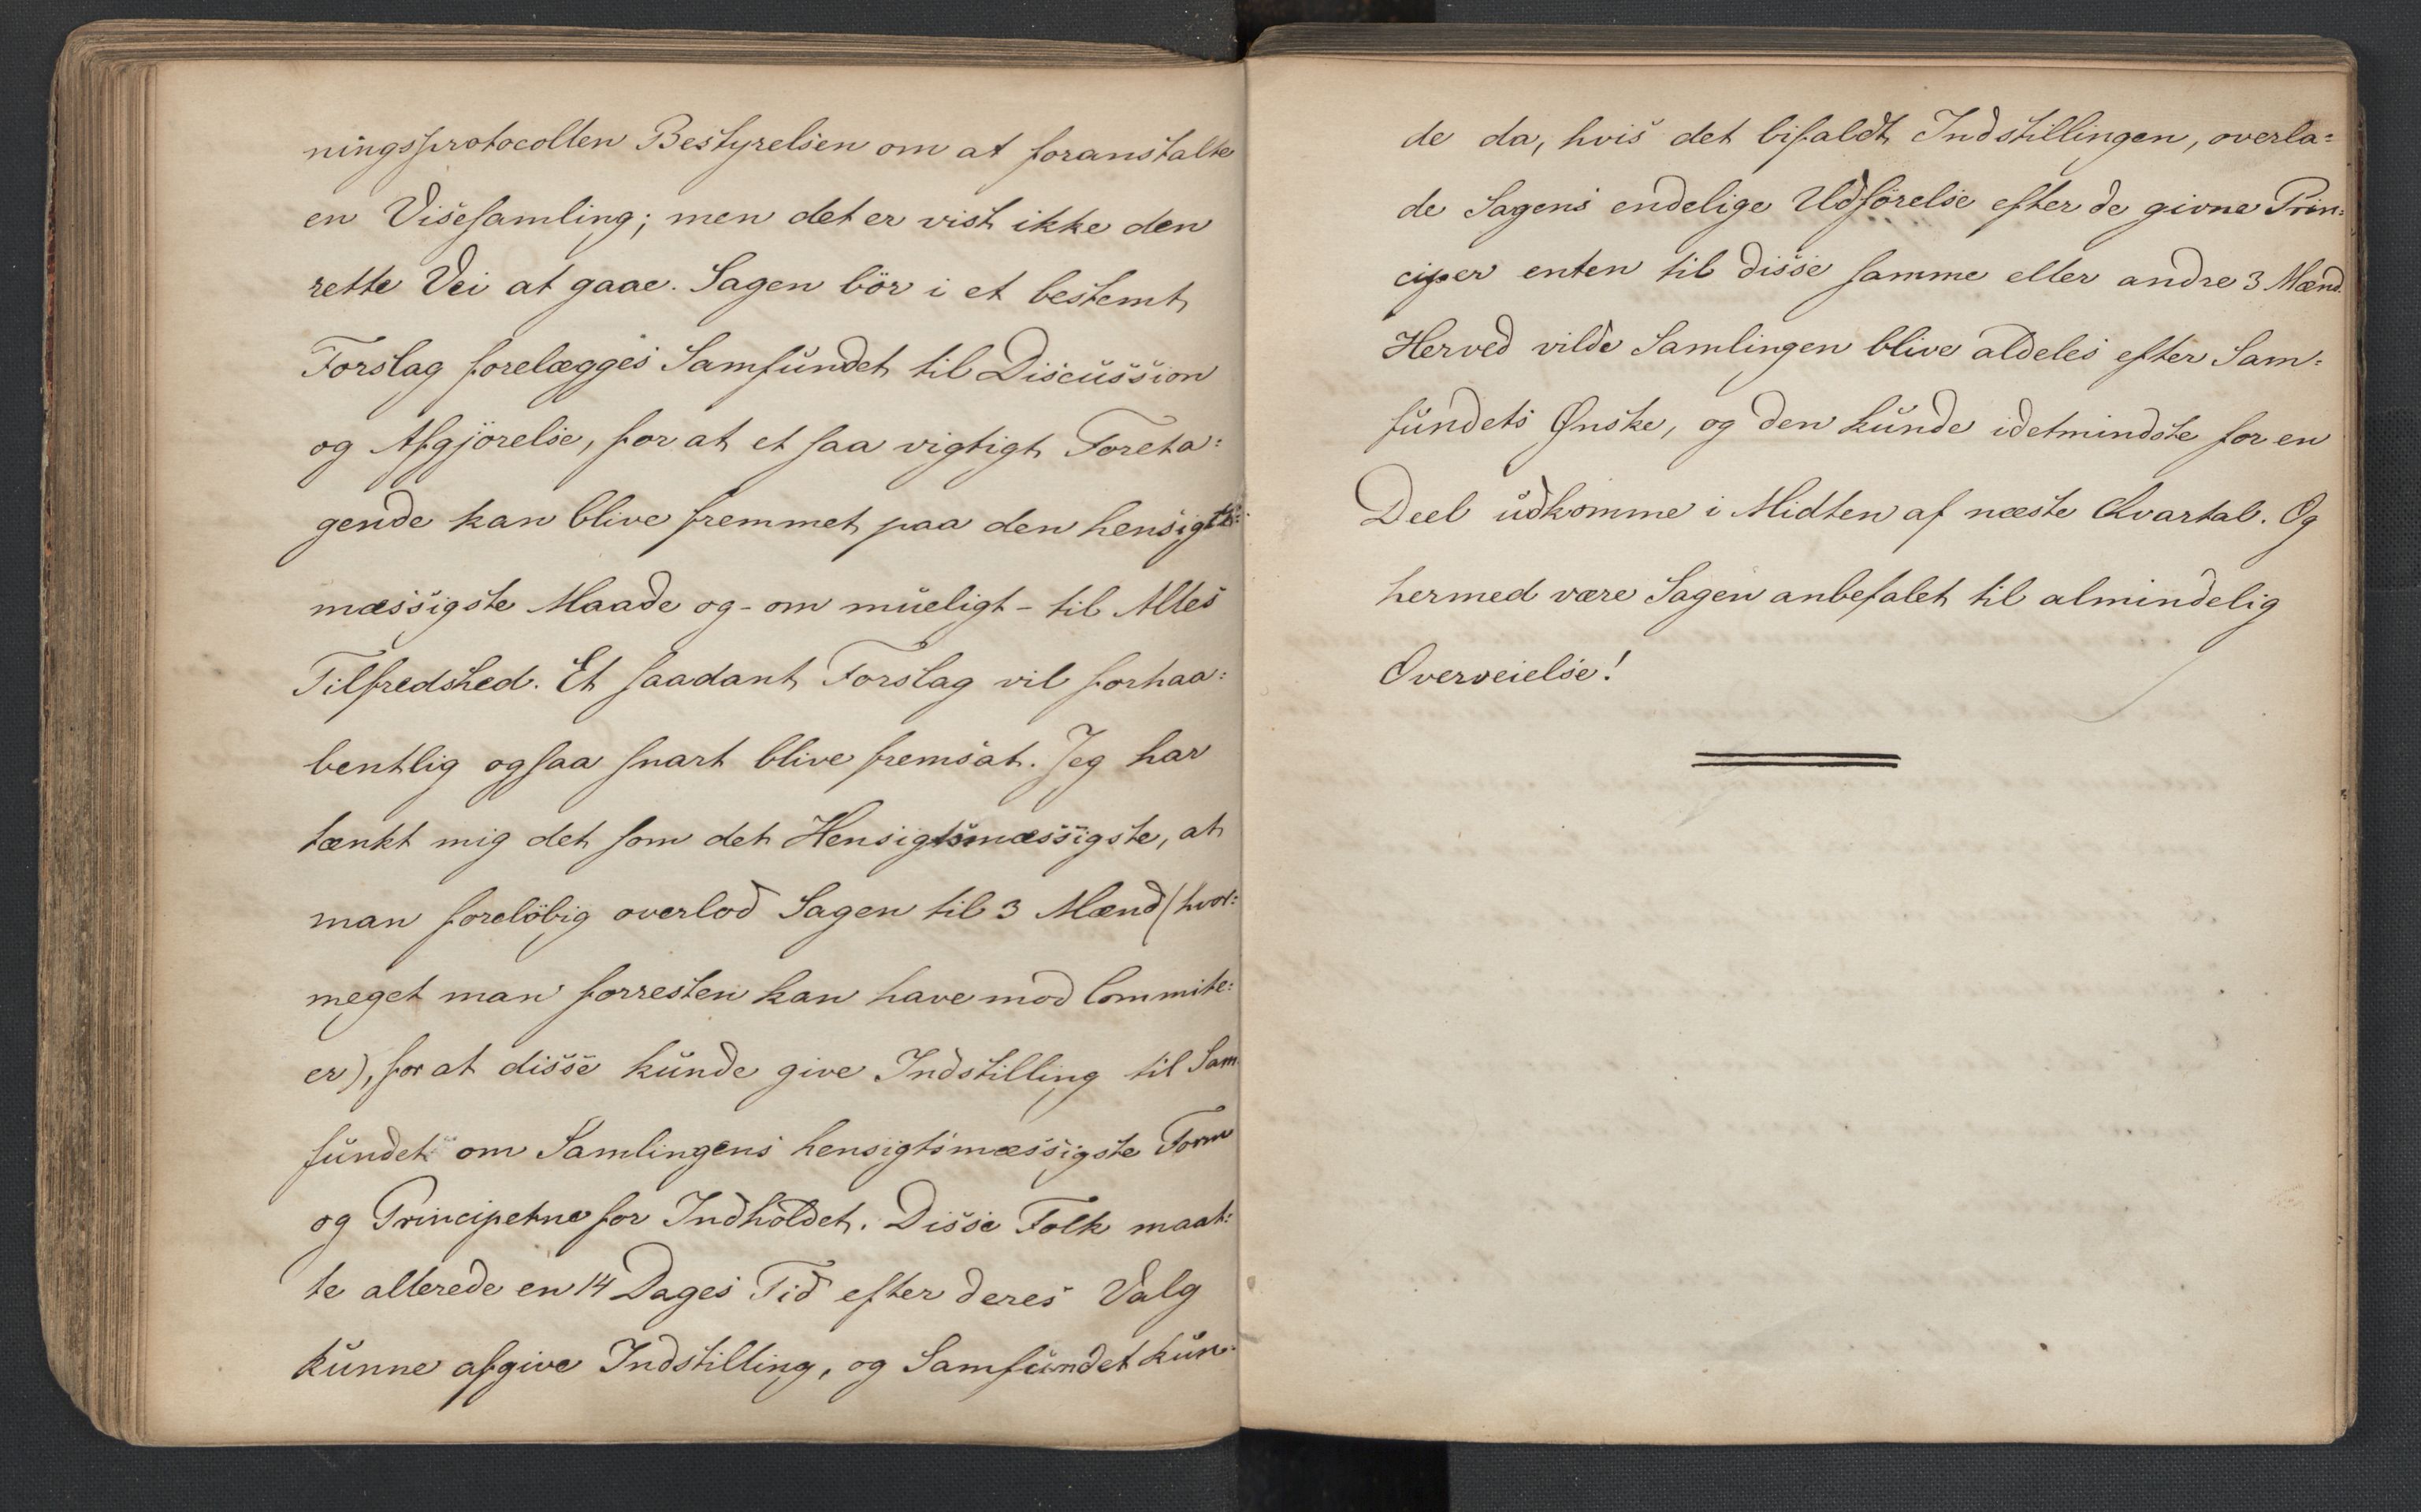 ningsprotocollen Bestyrelsen om at foranstalte
en Visesamling; men det er vist ikke den
rette Vei at gaae. Sagen bör i et bestemt
Forslag forelægges Samfundet til Discussion
og Afgjörelse, for at et saa vigtigt Foreta=
gende kan blive fremmet paa den hensigts=
mæssigste Maade og - om mueligt - til Alles
Tilfredshed. Et saadant Forslag vil forhaa=
bentlig ogsaa snart blive fremsat. Jeg har
tænkt mig det som det Hensigtsmæssigste, at
man forelöbig overlod Sagen til 3 Mænd (hvor=
meget man forresten kan have mod Commite=
er), for at disse kunde give Indstilling til Sam
fundet om Samlingens hensigtsmæssigste Form
og Principerne for Indholdet. Disse Folk maat=
te allerede en 14 Dages Tid efter deres Valg
kunne afgive Indstilling, og Samfundet kun=
de da, hvis det bifaldt Indstillingen, overla=
de Sagens endelige Udförelse efter de givne Prin=
ciper enten til disse samme eller andre 3 Mænd.
Herved vilde Samlingen blive aldeles efter Sam=
fundets Ønske, og den kunde idetmindste for en
Deel udkomme i Midten af næste Qvartal. Og
hermed være Sagen anbefalet til almindelig
Overveielse!